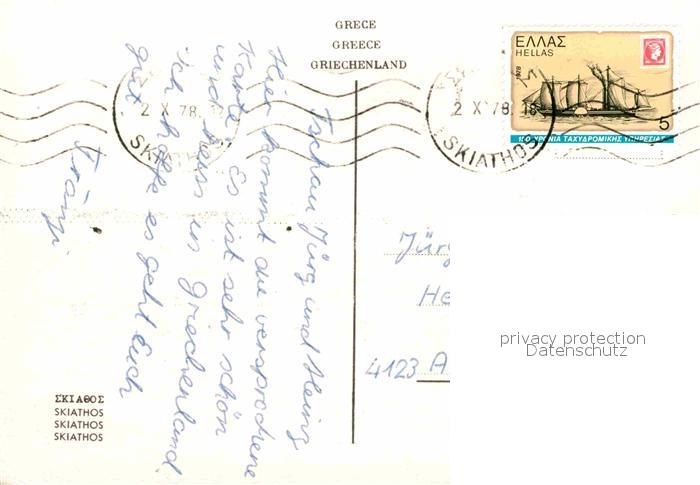 GRECE
GREECE
GRIECHENLAND
ΕΛΛΑΣ
HELLAS
1978
5
150 ΧΡΟΝΙΑ ΤΑΧΥΔΡΟΜΙΚΗΣ ΥΠΗΡΕΣΙΑΣ
2 X 78
SKIATHOS
2 X 78 18
SKIATHOS
Tschau Jürg und Heinz
Hier kommt die versprochene
Karte. Es ist sehr schön
und heiss in Griechenland.
Ich hoffe es geht Euch
gut.
Fränzi
Jürg
He
4123 A
privacy protection
Datenschutz
ΣΚΙΑΘΟΣ
SKIATHOS
SKIATHOS
SKIATHOS